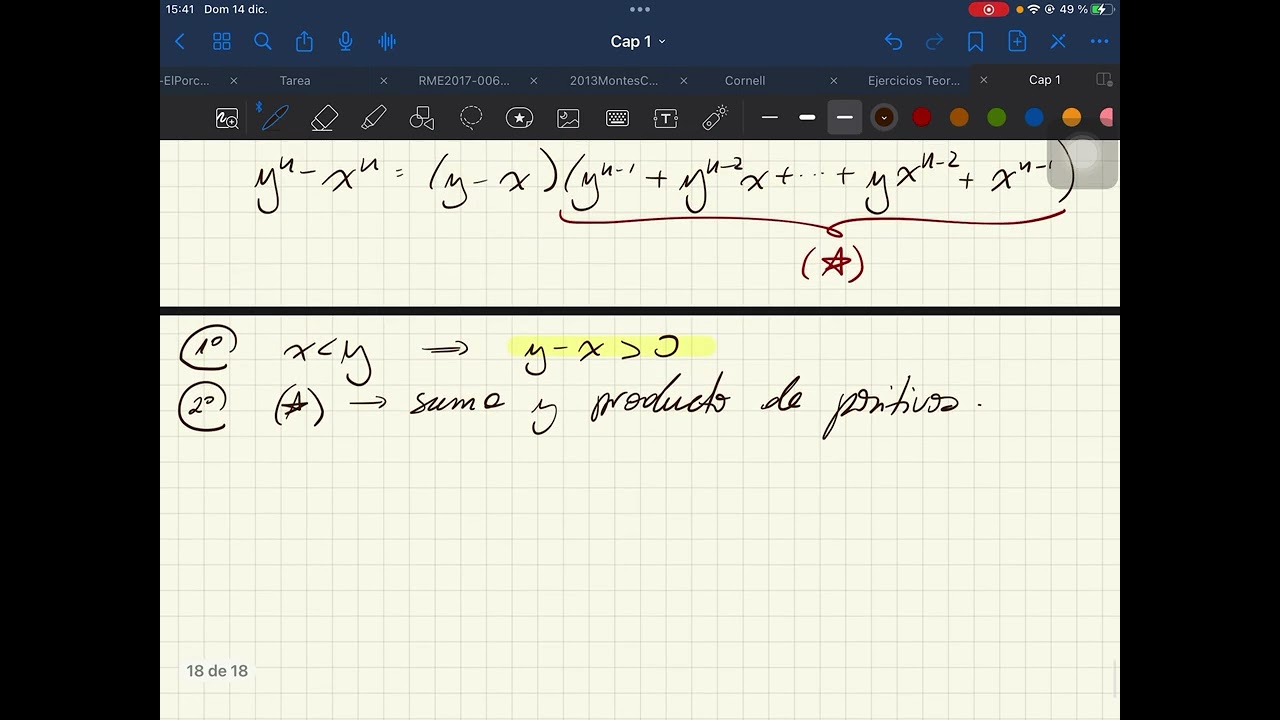 15:41 Dom 14 dic. 49 %
Cap 1
-ElPorc... Tarea RME2017-006... 2013MontesC... Cornell Ejercicios Teor... Cap 1
yⁿ - xⁿ = (y - x)(yⁿ⁻¹ + yⁿ⁻²x + ... + yxⁿ⁻² + xⁿ⁻¹)
(☆)
1º x < y ⇒ y - x > 0
2º (☆) → suma y producto de positivos.
18 de 18